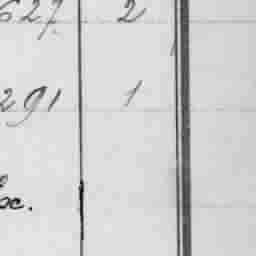 627. 2
291 1